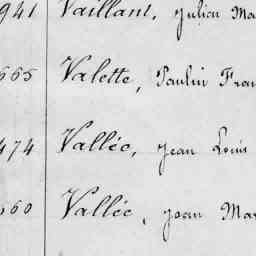 941 Vaillant, Julien Ma
665 Valette, Paulin Fran
474 Vallée, Jean Louis
660 Vallée, Jean Mar